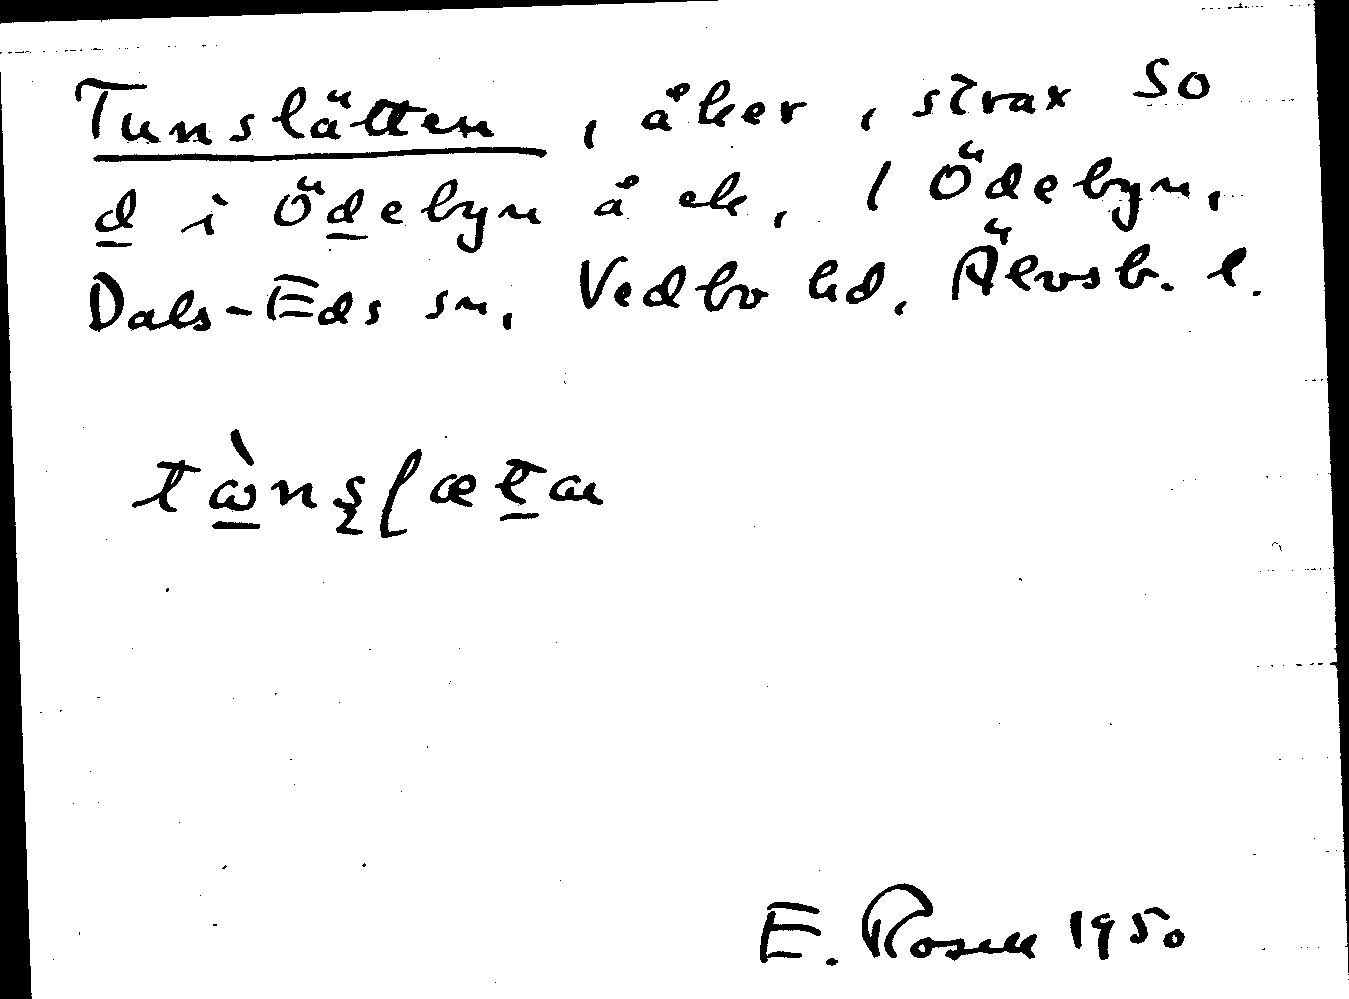 Tunslätten, åker, strax SO
d i Ödebyn å ek, 1 Ödebyn,
Dals-Eds sn, Vedbo hd, Älvsb. l.
E. Rosell 1950